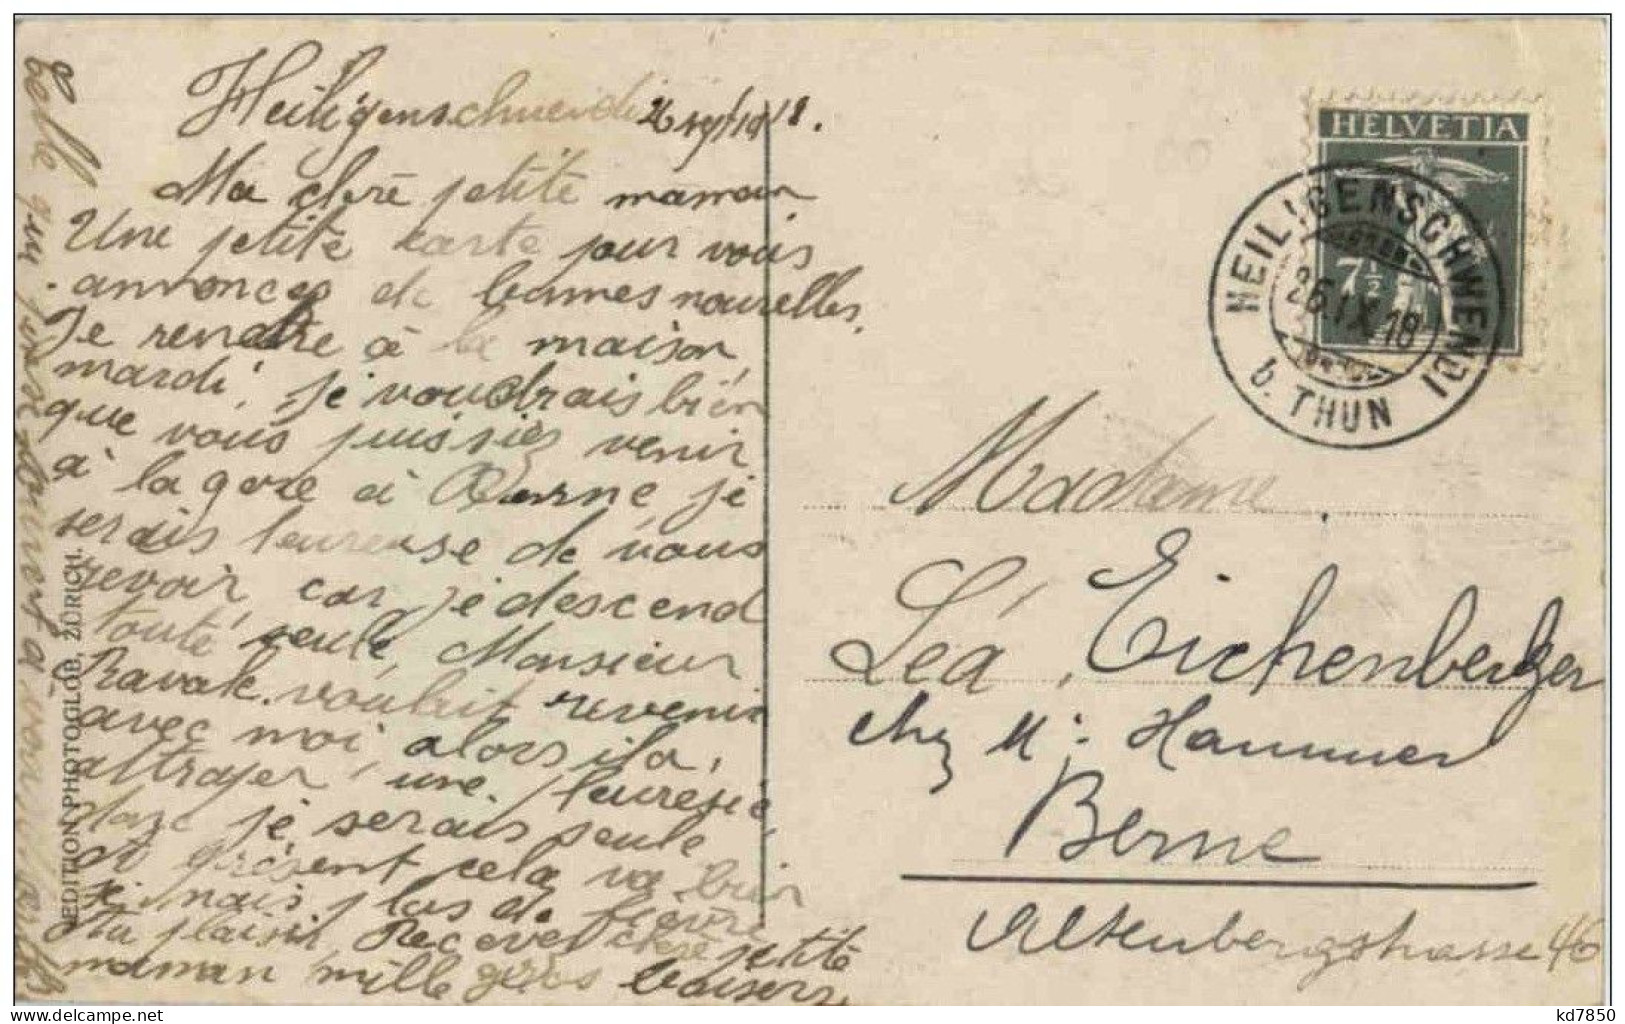 Heiligenschwendi 26 sept 1918.
Ma chère petite maman
Une petite carte pour vous
annoncer de bonnes nouvelles.
Je rendtre à la maison
mardi, je voudrais bien
que vous puissiez venir
à la gare à Berne je
serais heureuse de vous
revoir car je descend
toute seule, Monsieur
voulait revenir
avec moi, alors il a
attraper une pleuresie
donc je serais seule
et présent cela va bien
je nais plus de fièvre
plaisir, Recevez chère petite
maman mille gros baisers
Celle qui pense souvent à vous
EDITION PHOTOGLOB, ZÜRICH.
HELVETIA
7½
HEILIGENSCHWENDI
26.IX.18
b. THUN
Madame
Léa Eichenberger
chez M. Hammer
Berne
Altenbergstrasse 46
kd7850